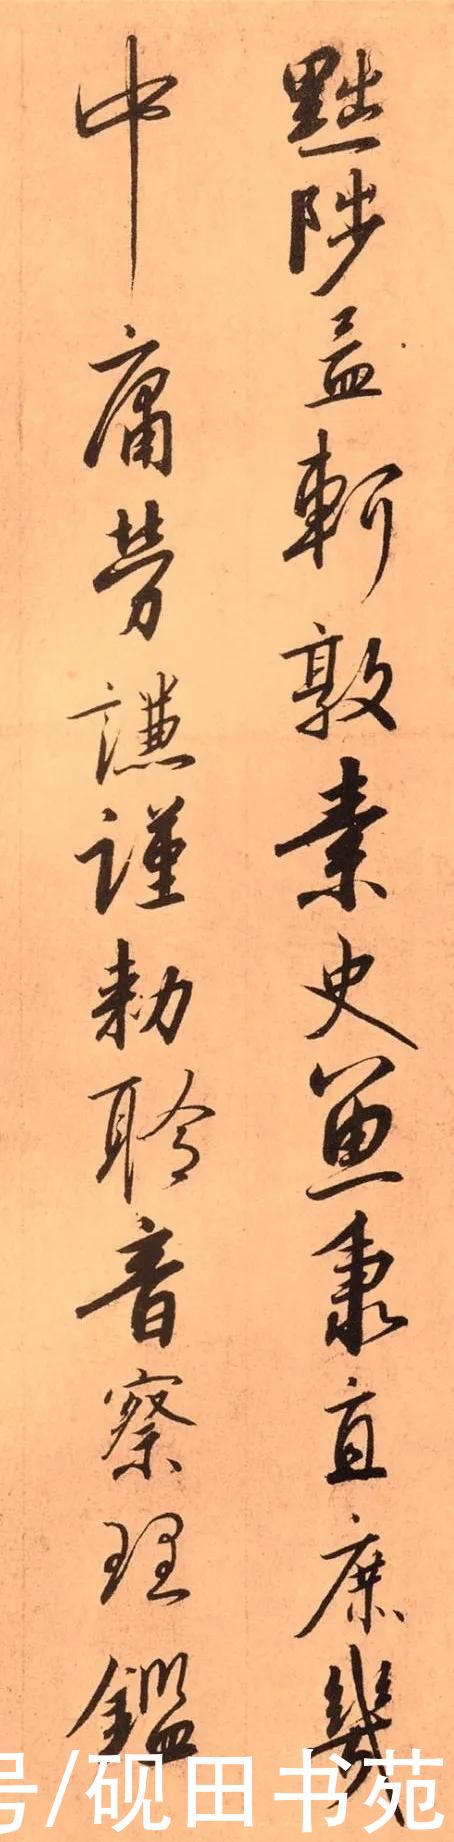 黜陟孟軻敦素史魚秉直庶幾
中庸勞謙謹勅聆音察理鑑
号/砚田书苑